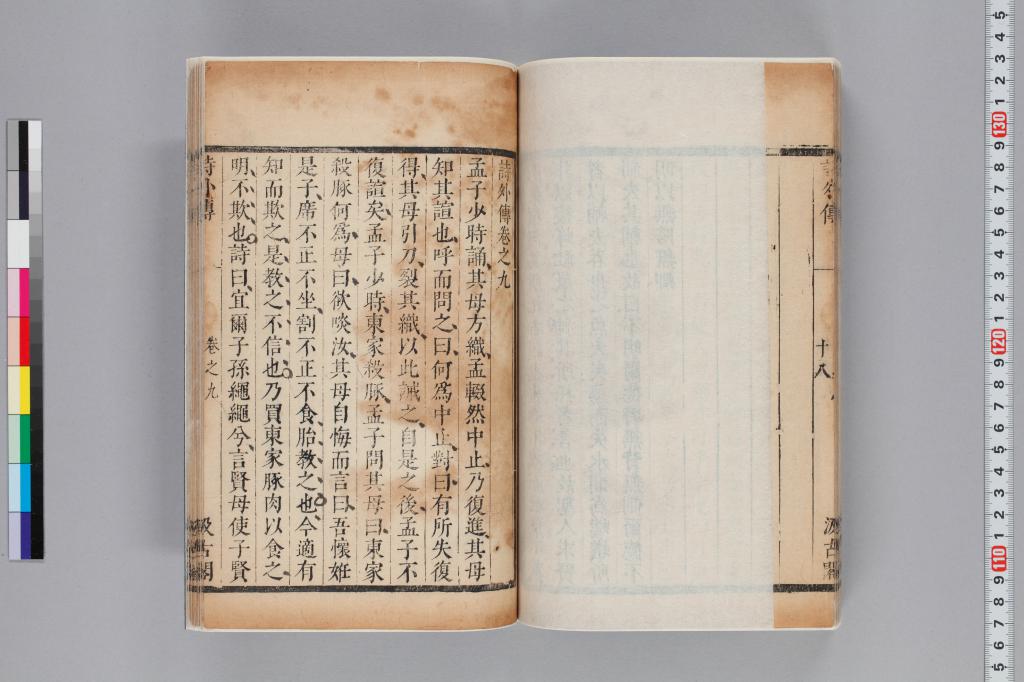 詩外傳卷之九
孟子少時誦其母方織孟輟然中止乃復進其母
知其諠也呼而問之曰何爲中止對曰有所失復
得其母引刀裂其織以此誡之自是之後孟子不
復諠矣孟子少時東家殺豚孟子問其母曰東家
殺豚何爲母曰欲啖汝其母自悔而言曰吾懷姙
是子席不正不坐割不正不食胎教之也今適有
知而欺之是教之不信也乃買東家豚肉以食之
明不欺也詩曰宜爾子孫繩繩兮言賢母使子賢
詩外傳 卷之九 汲古閣
詩外傳 十八 汲古閣
5
4
3
2
1
130
9
8
7
6
5
4
3
2
1
120
9
8
7
6
5
4
3
2
1
110
9
8
7
6
5